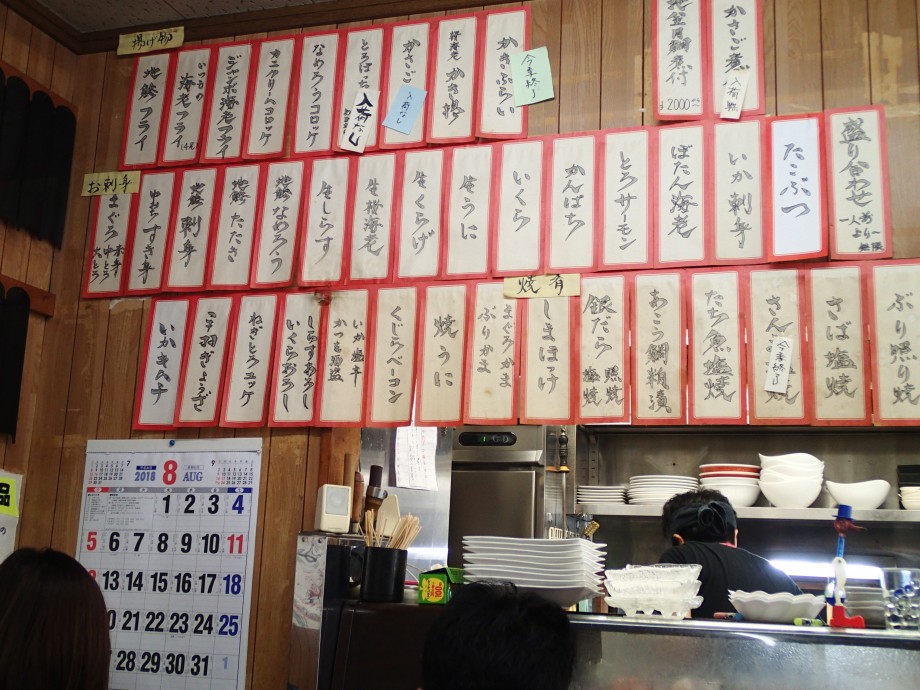 揚げ物
地鯵フライ
いつもの
海老フライ
(4尾)
ジャンボ海老フライ
カニクリームコロッケ
なめろうコロッケ
とろはっち
入荷なし
かさご
入荷なし
かき揚
かきふらい
今季終了
地金目鯛煮付
¥2000
かさご煮
入荷待
お刺身
まぐろ
赤身
中とろ
大とろ
中おちすき身
地鯵刺身
地鯵たたき
地鯵なめろう
生しらす
生桜海老
生くらげ
生うに
いくら
かんぱち
とろサーモン
ぼたん海老
いか刺身
たこぶつ
盛り合わせ
一人前
より〜
いかキムチ
手羽ぎょうざ
ねぎとろユッケ
しらすおろし
いくらおろし
いか塩辛
かつを酒盗
くじらベーコン
焼うに
まぐろかま
ぶりかま
焼肴
しまほっけ
銀だら
照焼
塩焼
あこう鯛粕漬
たち魚塩焼
さんま塩焼
今季終了
さば塩焼
ぶり照り焼
7
2018
8
AUG
9
1 2 3 4
5 6 7 8 9 10 11
13 14 15 16 17 18
20 21 22 23 24 25
28 29 30 31 1